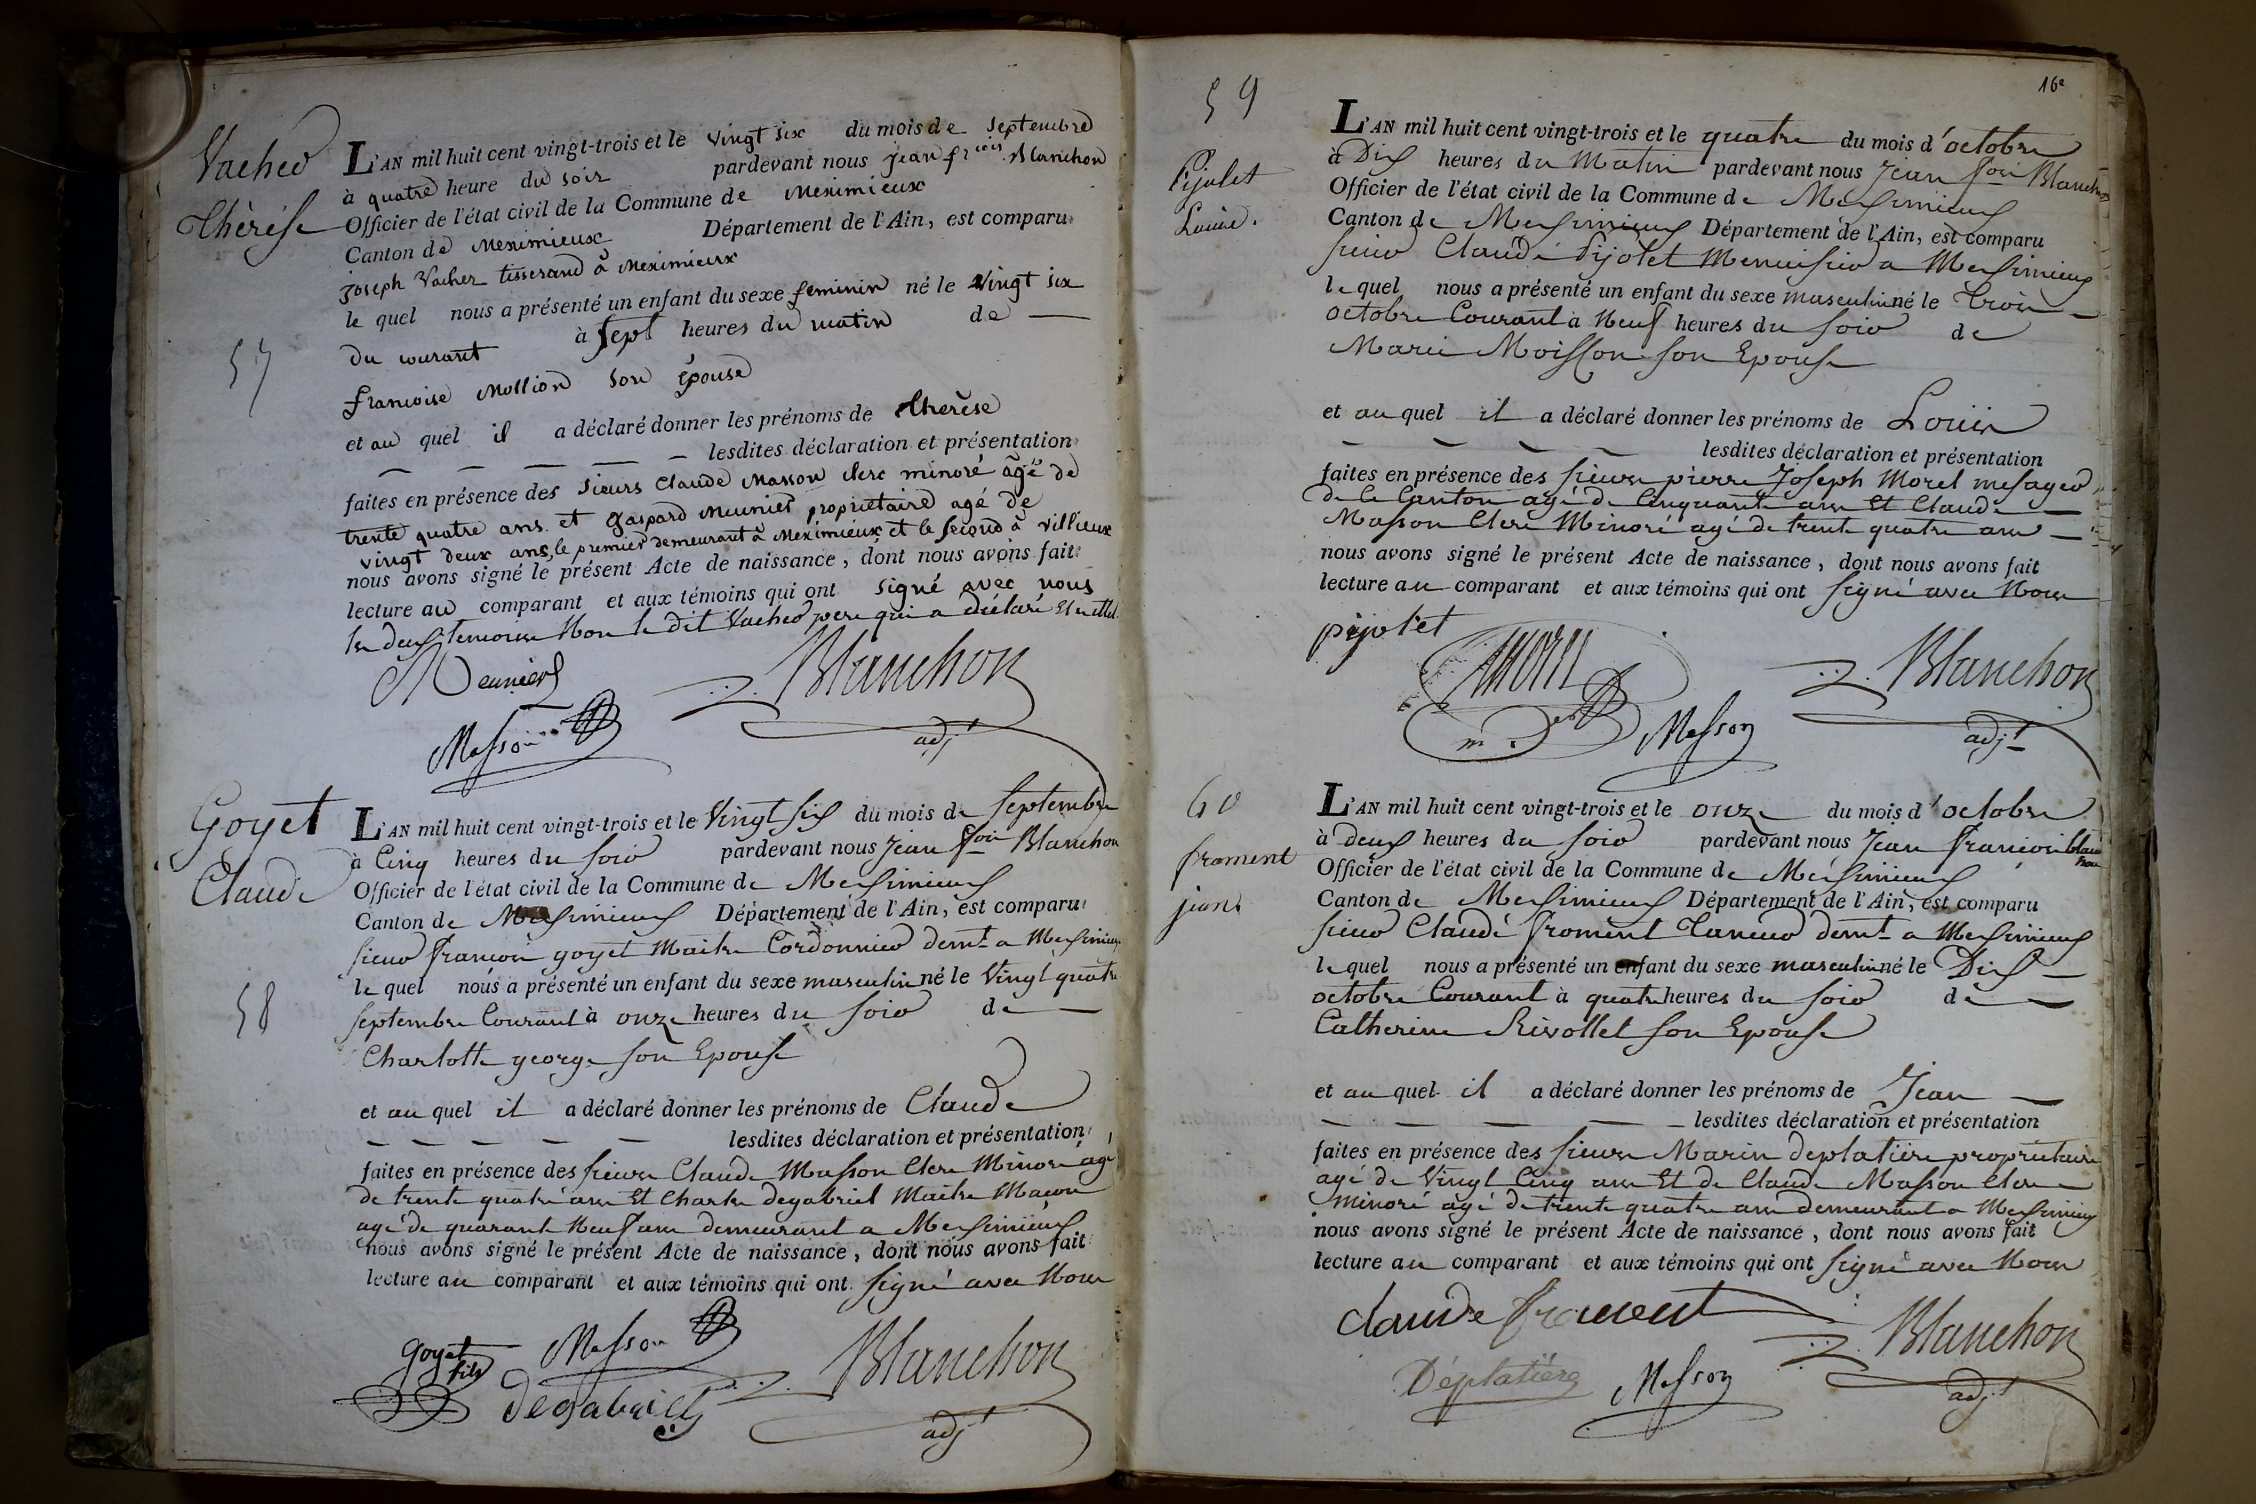 Vacher
Thérèse
57
L'AN mil huit cent vingt-trois et le vingt six du mois de septembre
à quatre heure du soir pardevant nous jean frcois Blanchon
Officier de l'état civil de la Commune de Meximieux
Canton de Meximieux Département de l'Ain, est comparu
joseph Vacher tisserand à Meximieux
le quel nous a présenté un enfant du sexe feminin né le vingt six
du courant à sept heures du matin de
françoise Mollion son épouse
et au quel il a déclaré donner les prénoms de therèse
lesdites déclaration et présentation
faites en présence des sieurs Claude Masson clerc minoré âgé de
trente quatre ans et gaspard Meunier propriétaire agé de
vingt deux ans, le premier demeurant à Meximieux et le second à villieux
nous avons signé le présent Acte de naissance, dont nous avons fait
lecture au comparant et aux témoins qui ont signé avec nous
les deux temoins Non le dit Vacher pere qui a déclaré
Meunier
Blanchon
Masson
adjt
Goyet
Claude
58
L'AN mil huit cent vingt-trois et le Vingt six du mois de septembre
à Cinq heures du soir pardevant nous Jean fcois Blanchon
Officier de l'état civil de la Commune de Meximieux
Canton de Meximieux Département de l'Ain, est comparu
sieur françois goyet Maitre Cordonnier demt a Meximieux
le quel nous a présenté un enfant du sexe masculin né le Vingt quatre
septembre Courant à onze heures du soir de
Charlotte george son Epouse
et au quel il a déclaré donner les prénoms de Claude
lesdites déclaration et présentation
faites en présence des sieurs Claude Masson Clerc Minoré agé
de trente quatre ans Et Charles degabriel Maitre Maçon
agé de quarante Neuf ans demeurant a Meximieux
nous avons signé le présent Acte de naissance, dont nous avons fait
lecture au comparant et aux témoins qui ont signé avec Nous
goyet fils
Masson
Blanchon
degabriel
adjt
16e
59
Pijolet
Louis.
L'AN mil huit cent vingt-trois et le quatre du mois d'octobre
à Dix heures du Matin pardevant nous Jean fcois Blanchon
Officier de l'état civil de la Commune de Meximieux
Canton de Meximieux Département de l'Ain, est comparu
sieur Claude Pijolet Menuisier a Meximieux
le quel nous a présenté un enfant du sexe masculin né le trois
octobre Courant à Neuf heures du soir de
Marie Moisson son Epouse
et au quel il a déclaré donner les prénoms de Louis
lesdites déclaration et présentation
faites en présence des sieurs pierre Joseph Morel mesager
de le Canton agé de Cinquante ans Et Claude
Masson Clerc Minoré agé de trente quatre ans
nous avons signé le présent Acte de naissance, dont nous avons fait
lecture au comparant et aux témoins qui ont signé avec Nous
pijolet
Morel
Blanchon
Masson
adjt
60
froment
jean.
L'AN mil huit cent vingt-trois et le onze du mois d'octobre
à deux heures du soir pardevant nous Jean françois blanchon
Officier de l'état civil de la Commune de Méximieux
Canton de Meximieux Département de l'Ain, est comparu
sieur Claude froment Tanneur demt a Meximieux
le quel nous a présenté un enfant du sexe masculin né le Dix
octobre Courant à quatre heures du soir de
Catherine Rivollet son Epouse
et au quel il a déclaré donner les prénoms de Jean
lesdites déclaration et présentation
faites en présence des sieurs Marin deplatière propriétaire
agé de Vingt Cinq ans Et de Claude Masson Clerc
minoré agé de trente quatre ans demeurant a Meximieux
nous avons signé le présent Acte de naissance, dont nous avons fait
lecture au comparant et aux témoins qui ont signé avec Nous
claude froment
Blanchon
Déplatière
Masson
adjt